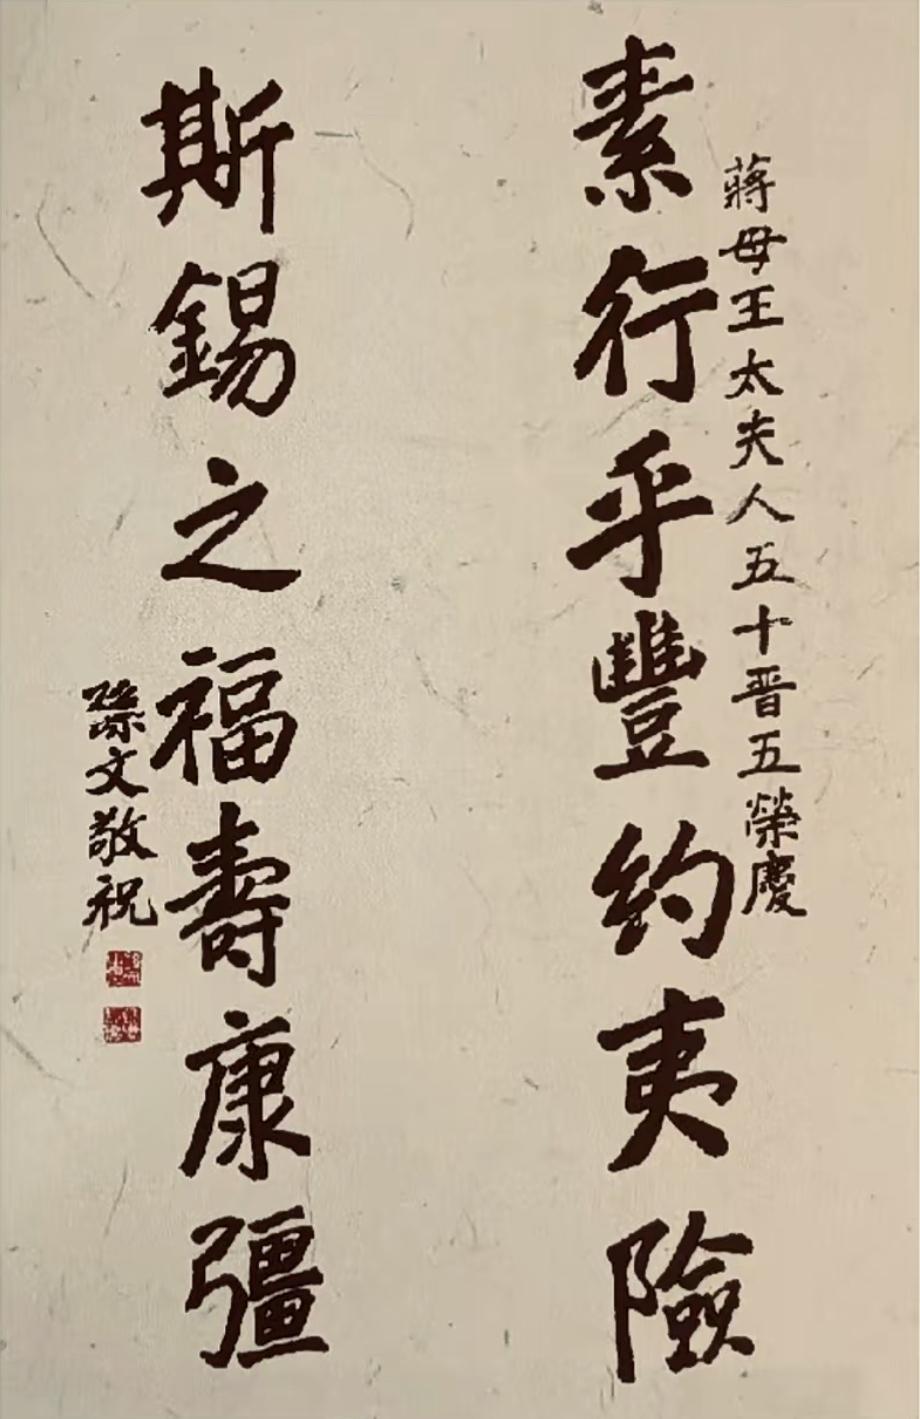 蔣母王太夫人五十晋五榮慶
素行乎豐約夷險
斯錫之福壽康彊
孫文敬祝